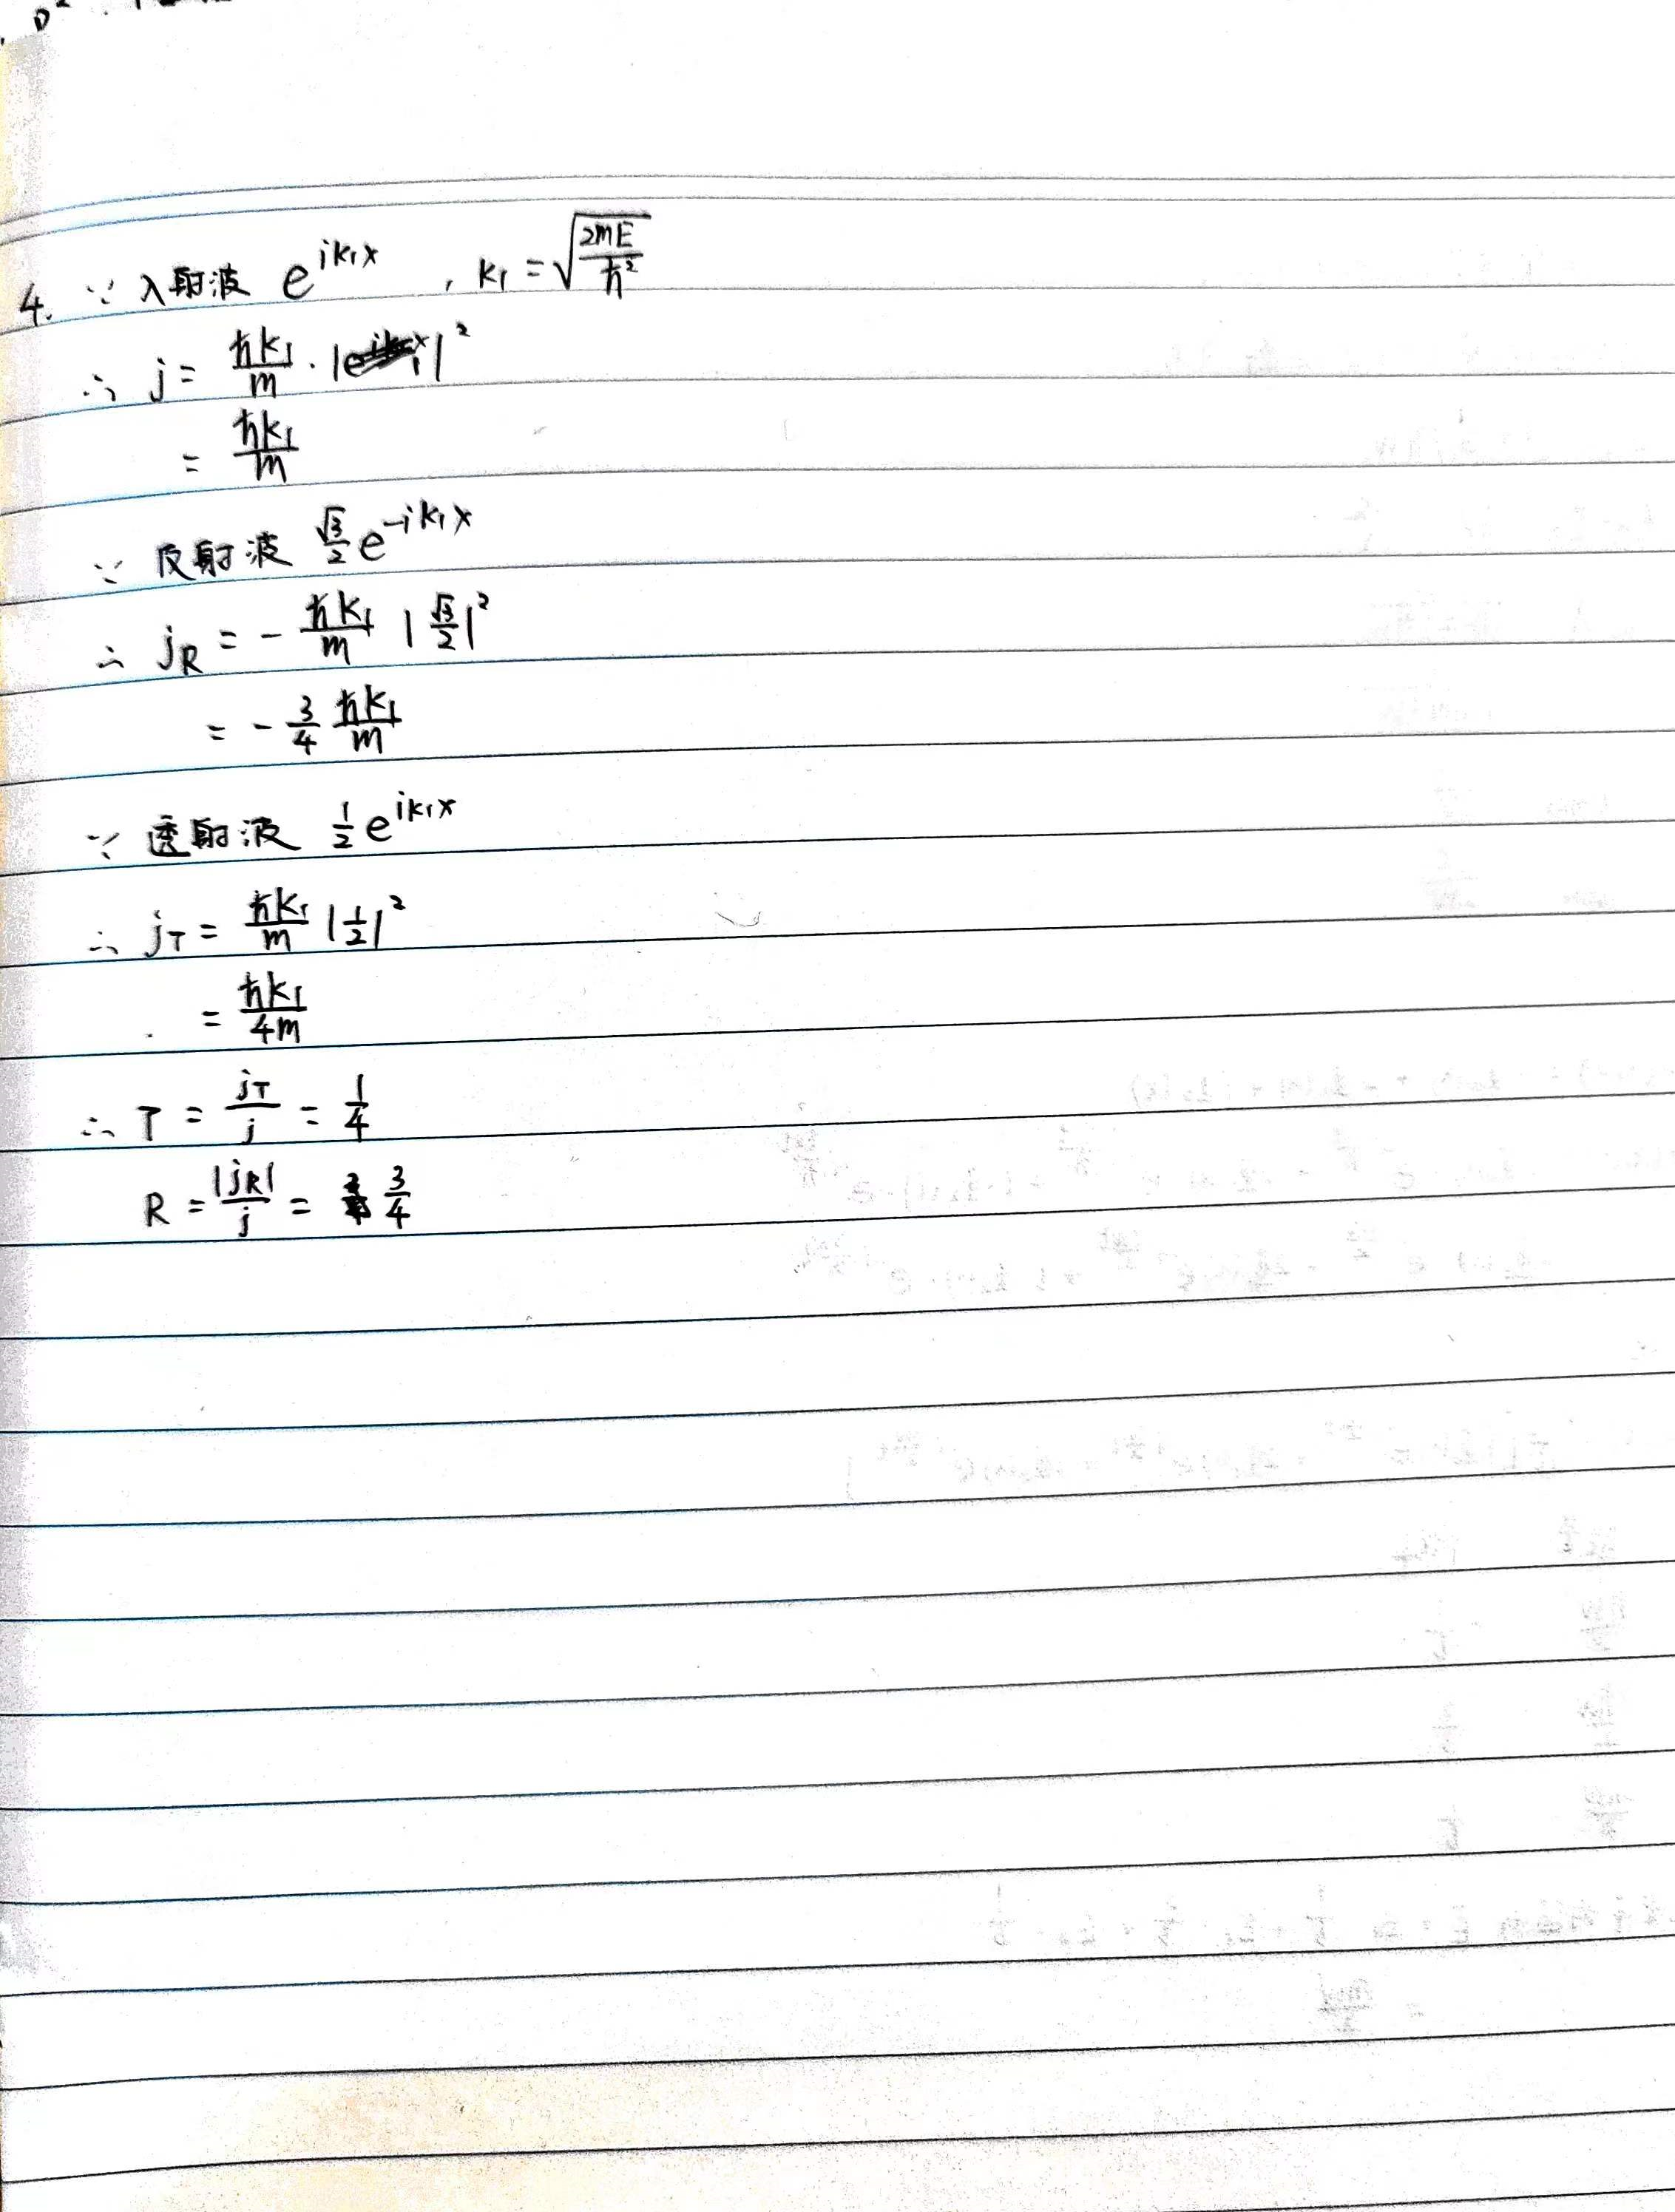 4. ∵ 入射波 e^{ik₁x} , k₁ = √(2mE/ħ²)
∴ j = ħk₁/m · | |²
= ħk₁/m
∵ 反射波 √3/2 e^{-ik₁x}
∴ j_R = - ħk₁/m |√3/2|²
= - 3/4 ħk₁/m
∵ 透射波 1/2 e^{ik₁x}
∴ j_T = ħk₁/m |1/2|²
= ħk₁/4m
∴ T = j_T/j = 1/4
R = |j_R|/j = 3/4